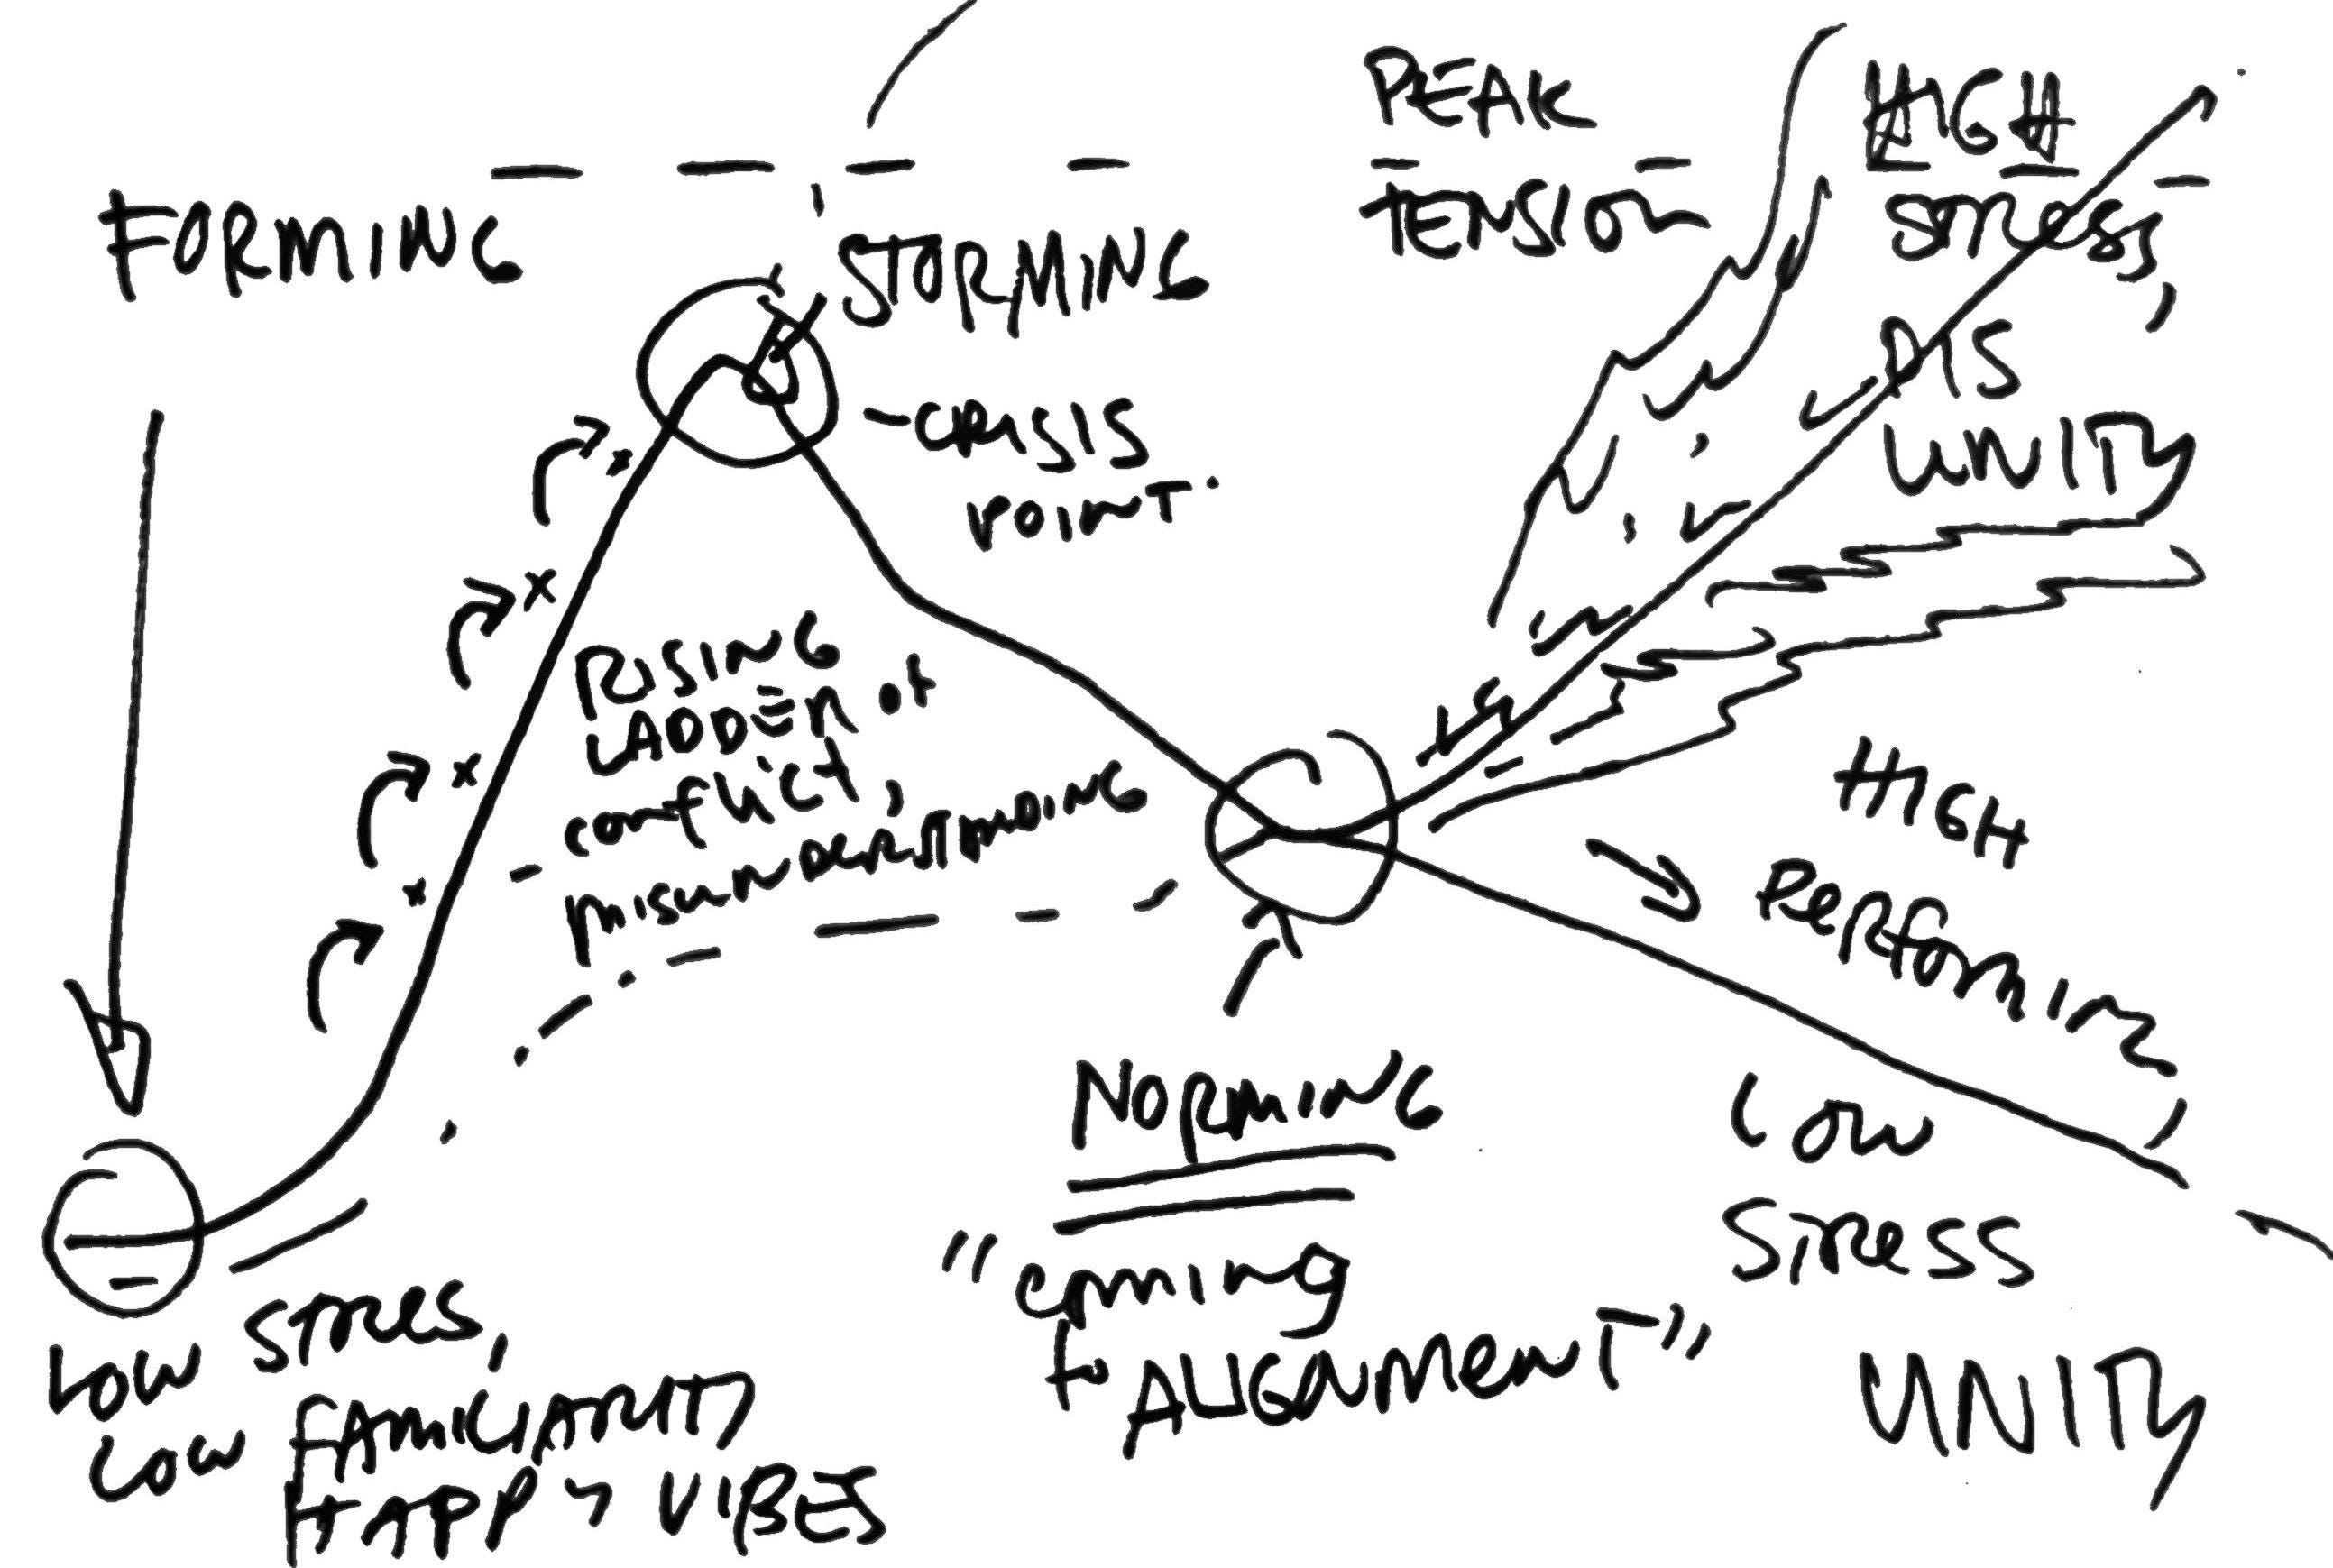 FORMING
STORMING
- CRISIS
POINT.
PEAK
TENSION
HIGH
STRESS,
DIS
UNITY
RISING
LADDER of
conflict,
misunDERSTANDING
HIGH
PERFORMING,
LOW
STRESS
UNITY
NORMING
"coming
to ALIGNMENT"
LOW STRES,
LOW FAMILIARITY
HAPPY VIBES